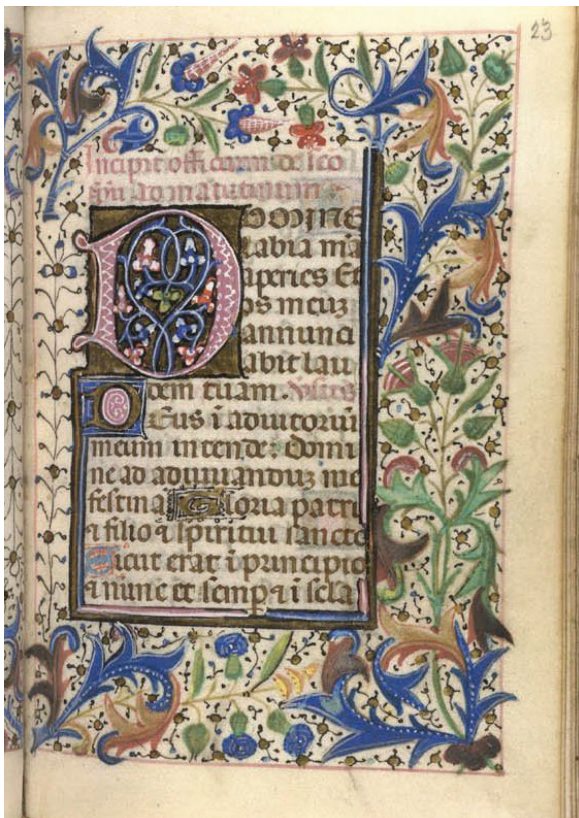 23
Incipit officium de sco
spũ ad matutinum
DOMINE
labia m̃a
aperies Et
os meuz
annunci
abit lau
dem tuam. Ṽsus
DEus ĩ adiutoriũ
meum intende: domi
ne ad adiuuanduz me
festina Gloria patri
⁊ filio ⁊ spiritui sancto
Sicut erat ĩ principio
⁊ nunc et semp̱ ⁊ ĩ scla